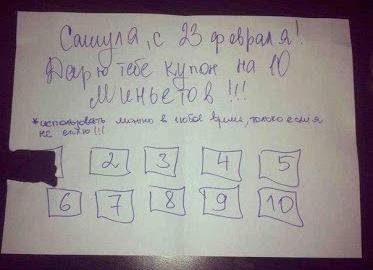 Сашула, с 23 февраля!
Дарю тебе купон на 10
Миньетов!!!
*использовать можно в любое время, только если я
не сплю!!!
2 3 4 5
6 7 8 9 10